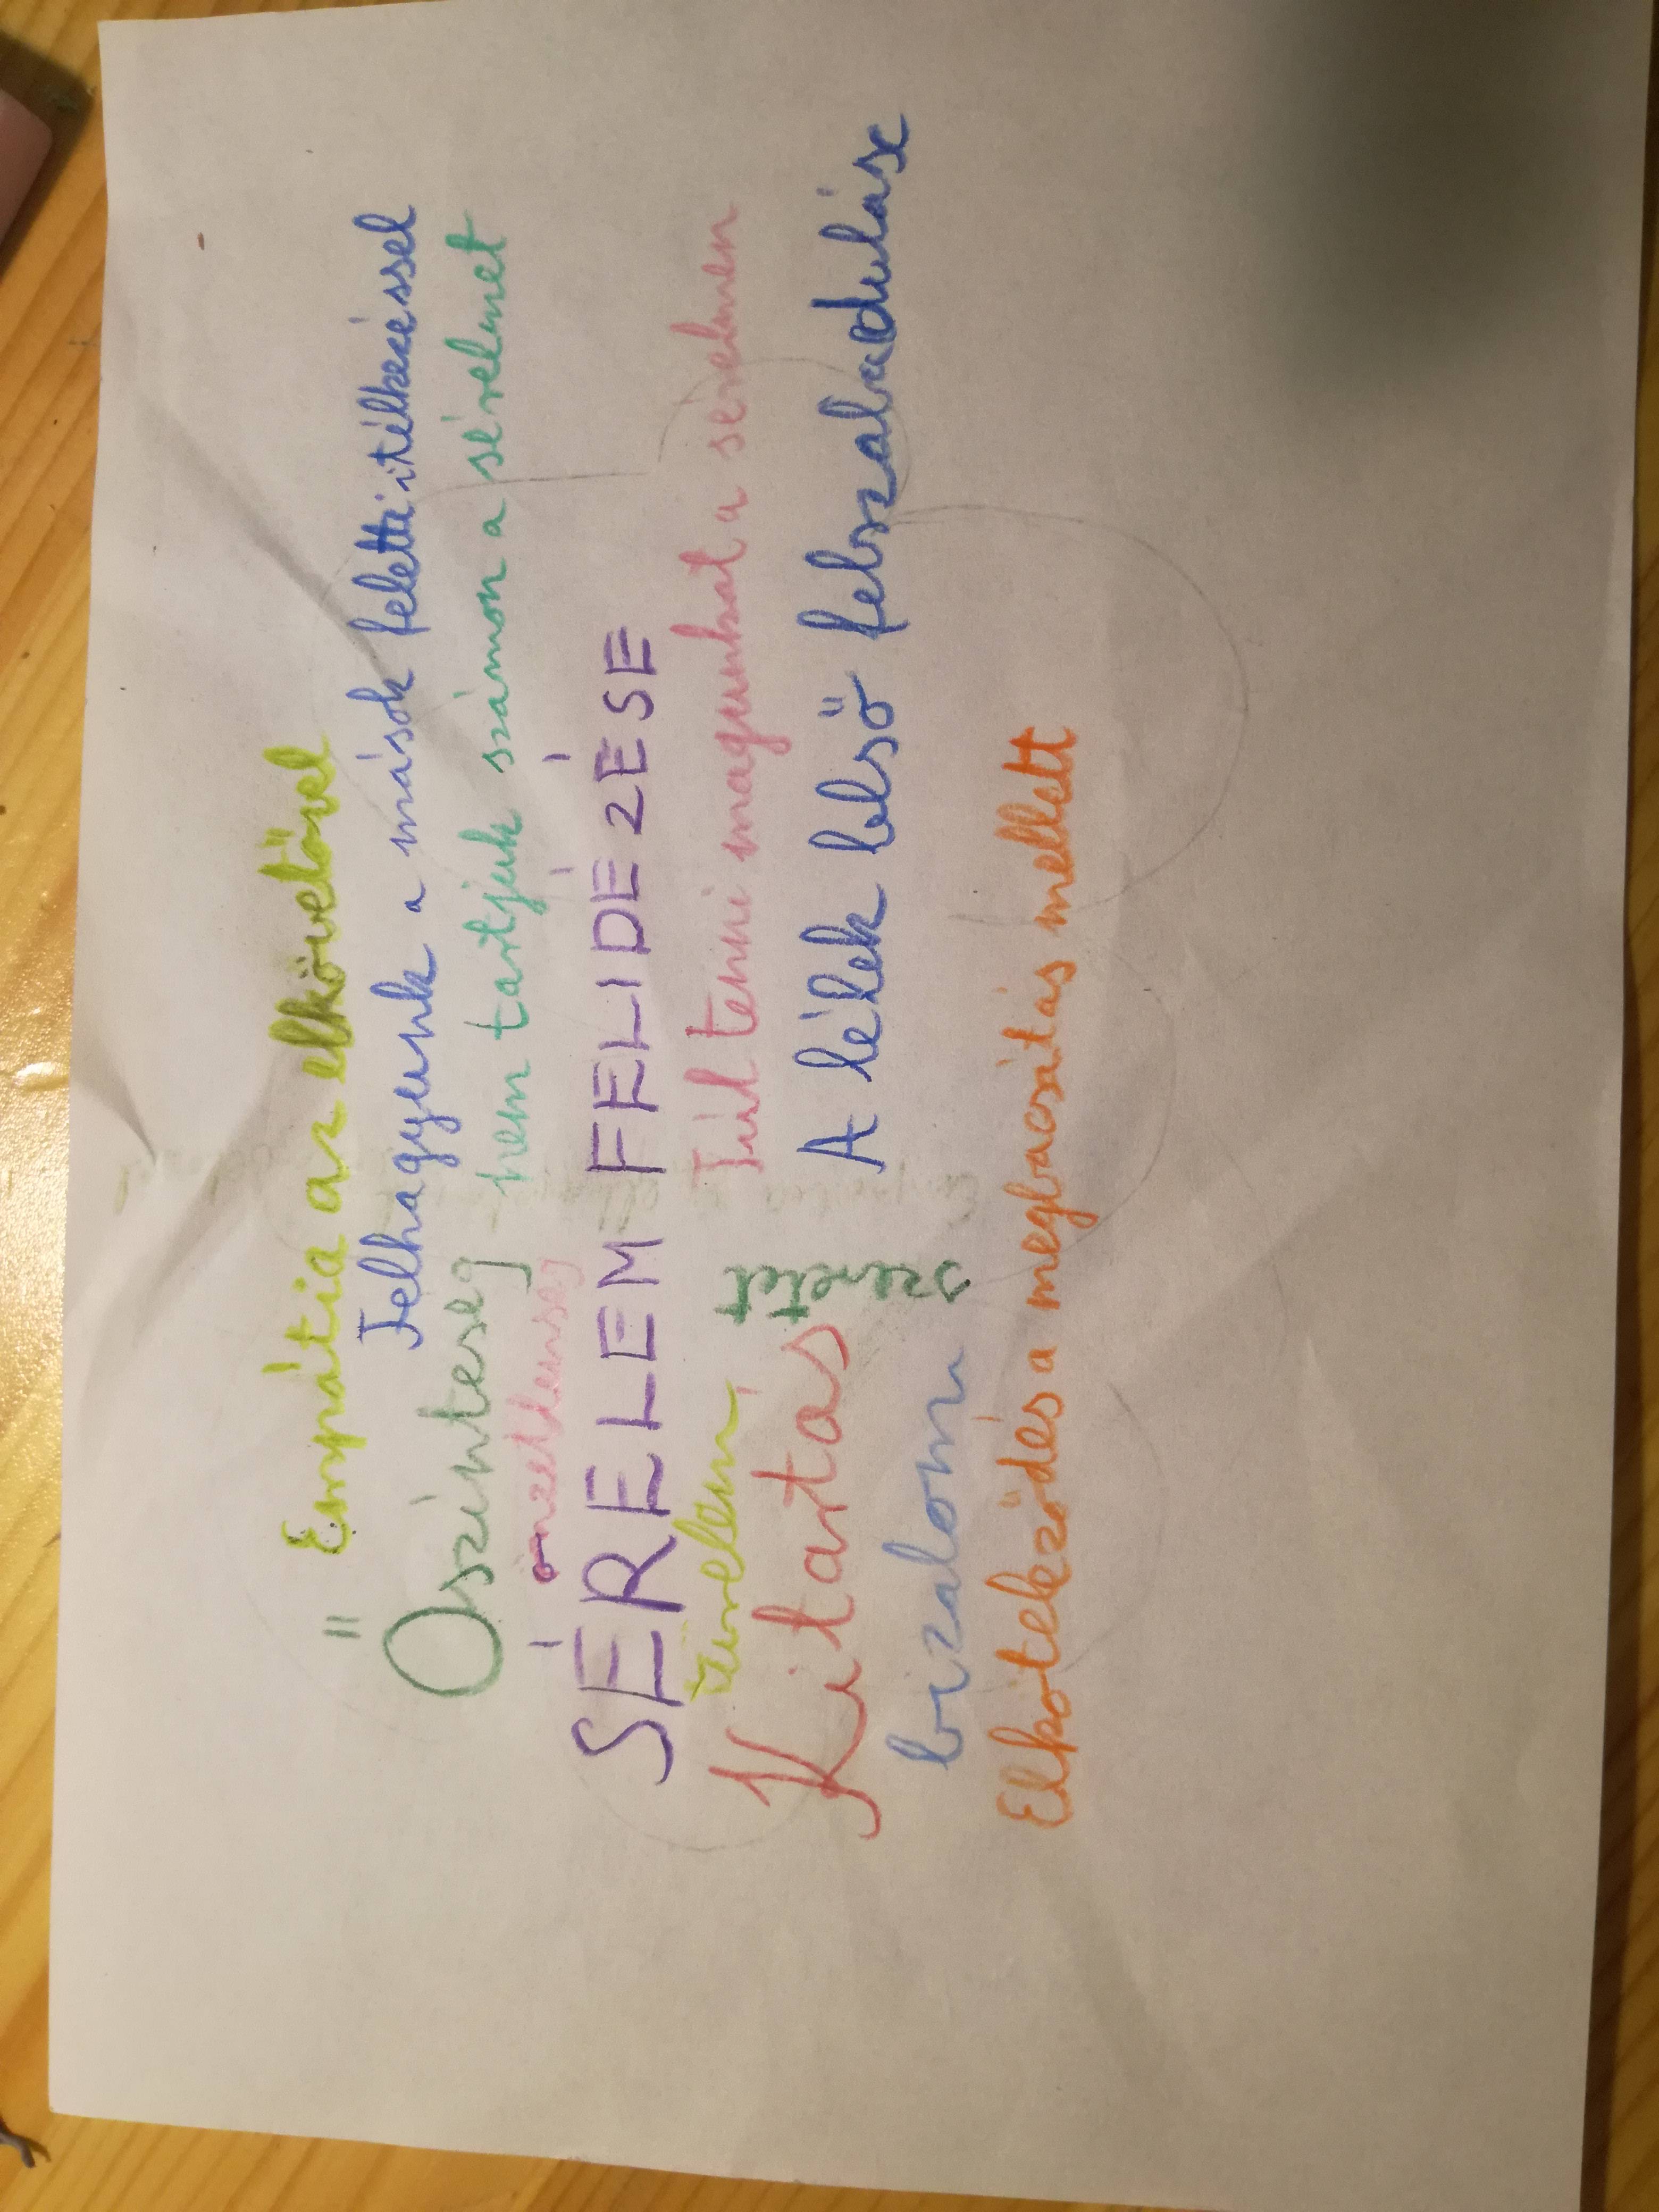 Empátia az elkövetővel
Felhagyunk a mások feletti itélkezéssel
Őszinteség
nem tartjuk számon a sérelmet
önzetlenség
SÉRELEM FELIDÉZÉSE
türelem
Túl tenni magunkat a sérelmen
Kitartás
szeretet
A lélek belső felszabadulása
bizalom
Elköteleződés a megbocsitás mellett